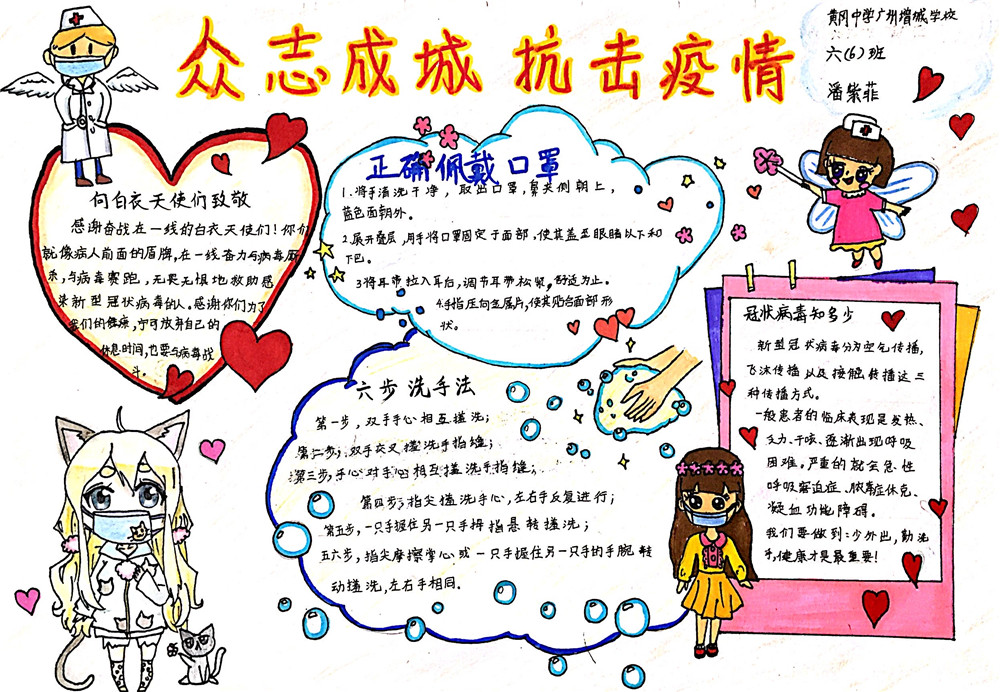 众志成城 抗击疫情
黄冈中学广州增城学校
六(6)班
潘紫菲
向白衣天使们致敬
感谢奋战在一线的白衣天使们！你们
就像病人前面的盾牌，在一线奋力与病毒厮
杀，与病毒赛跑，无畏无惧地救助感
染新型冠状病毒的人。感谢你们为了
我们的健康，宁可放弃自己的
休息时间，也要与病毒战
斗。
正确佩戴口罩
1.将手清洗干净，取出口罩，鼻夹侧朝上，
蓝色面朝外。
2.展开叠层，用手将口罩固定于面部，使其盖至眼睛以下和
下巴。
3将耳带拉入耳台，调节耳带松紧，舒适为止。
4.手指压向金属片，使其贴合面部形
状。
六步洗手法
第一步，双手手心相互搓洗；
第二步，双手交叉搓洗手指缝；
第三步，手心对手心相互搓洗手指缝；
第四步，指尖搓洗手心，左右手反复进行；
第五步，一只手握住另一只手拇指悬转搓洗；
五六步，指尖摩擦掌心或一只手握住另一只手的手腕转
动搓洗，左右手相同。
冠状病毒知多少
新型冠状病毒分为空气传播，
飞沫传播以及接触传播这三
种传播方式。
一般患者的临床表现是发热、
乏力、干咳、逐渐出现呼吸
困难。严重的就会急性
呼吸窘迫症、脓毒症休克、
凝血功能障碍。
我们要做到：少外出，勤洗
手，健康才是最重要！